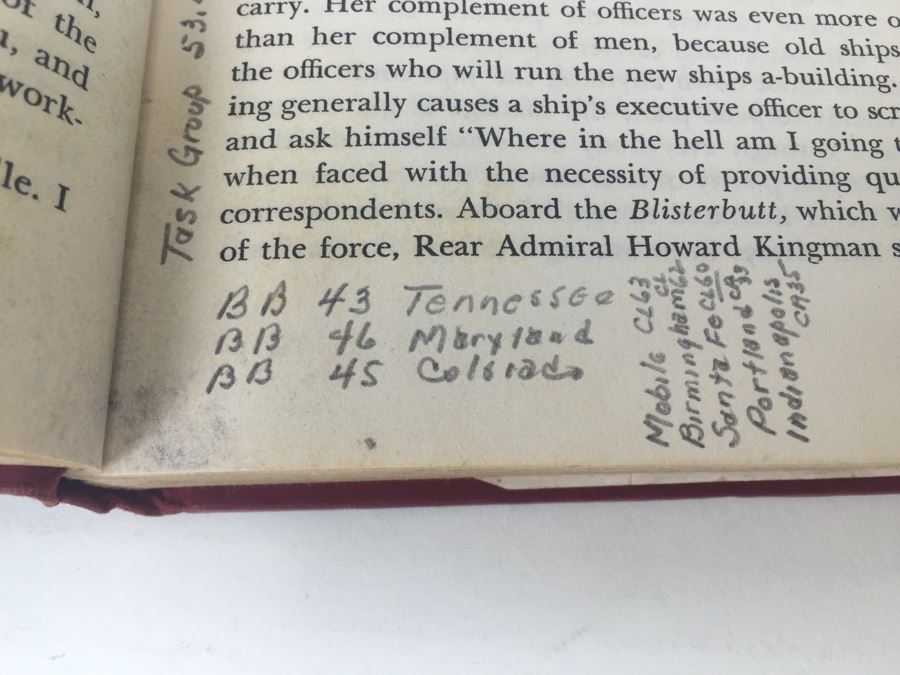 of the
, and
work-
le. I
carry. Her complement of officers was even more o
than her complement of men, because old ships
the officers who will run the new ships a-building.
ing generally causes a ship's executive officer to scr
and ask himself "Where in the hell am I going t
when faced with the necessity of providing qu
correspondents. Aboard the Blisterbutt, which w
of the force, Rear Admiral Howard Kingman s
Task Group 53.
BB 43 Tennessee
BB 46 Maryland
BB 45 Colorado
Mobile CL63
Birmingham CL 62
Santa Fe CL60
Portland CA 33
Indianapolis CA35